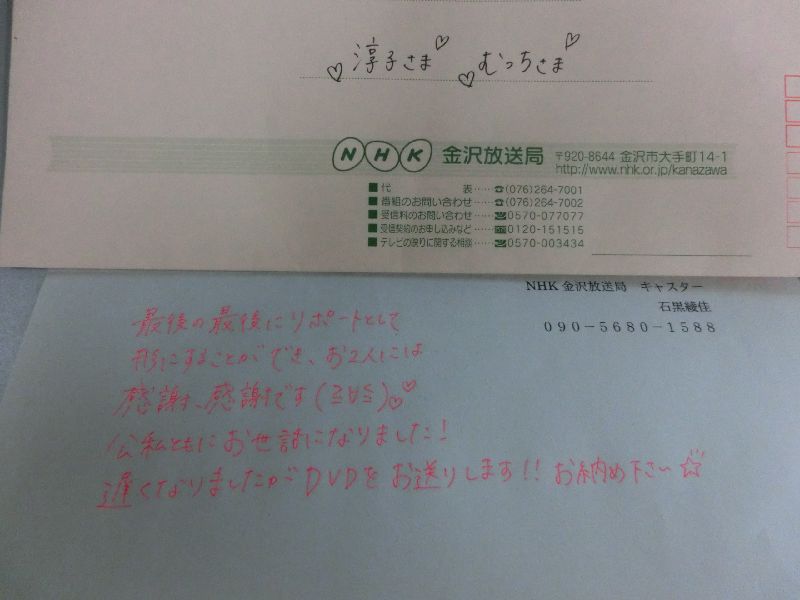 ♡淳子さま♡ ♡むっちさま♡
NHK 金沢放送局 〒920-8644 金沢市大手町14-1
http://www.nhk.or.jp/kanazawa
■代 表‥‥☎(076)264-7001
■番組のお問い合わせ‥‥☎(076)264-7002
■受信料のお問い合わせ‥‥☎0570-077077
■受信契約のお申し込みなど‥‥0120-151515
■テレビの映りに関する相談‥‥☎0570-003434
NHK金沢放送局 キャスター
石黒綾佳
090-5680-1588
最後の最後にリポートとして
形にすることができ、お2人には
感謝、感謝です(≧∀≦)♡♡
公私ともにお世話になりました!
遅くなりましたがDVDをお送りします!! お納め下さい☆